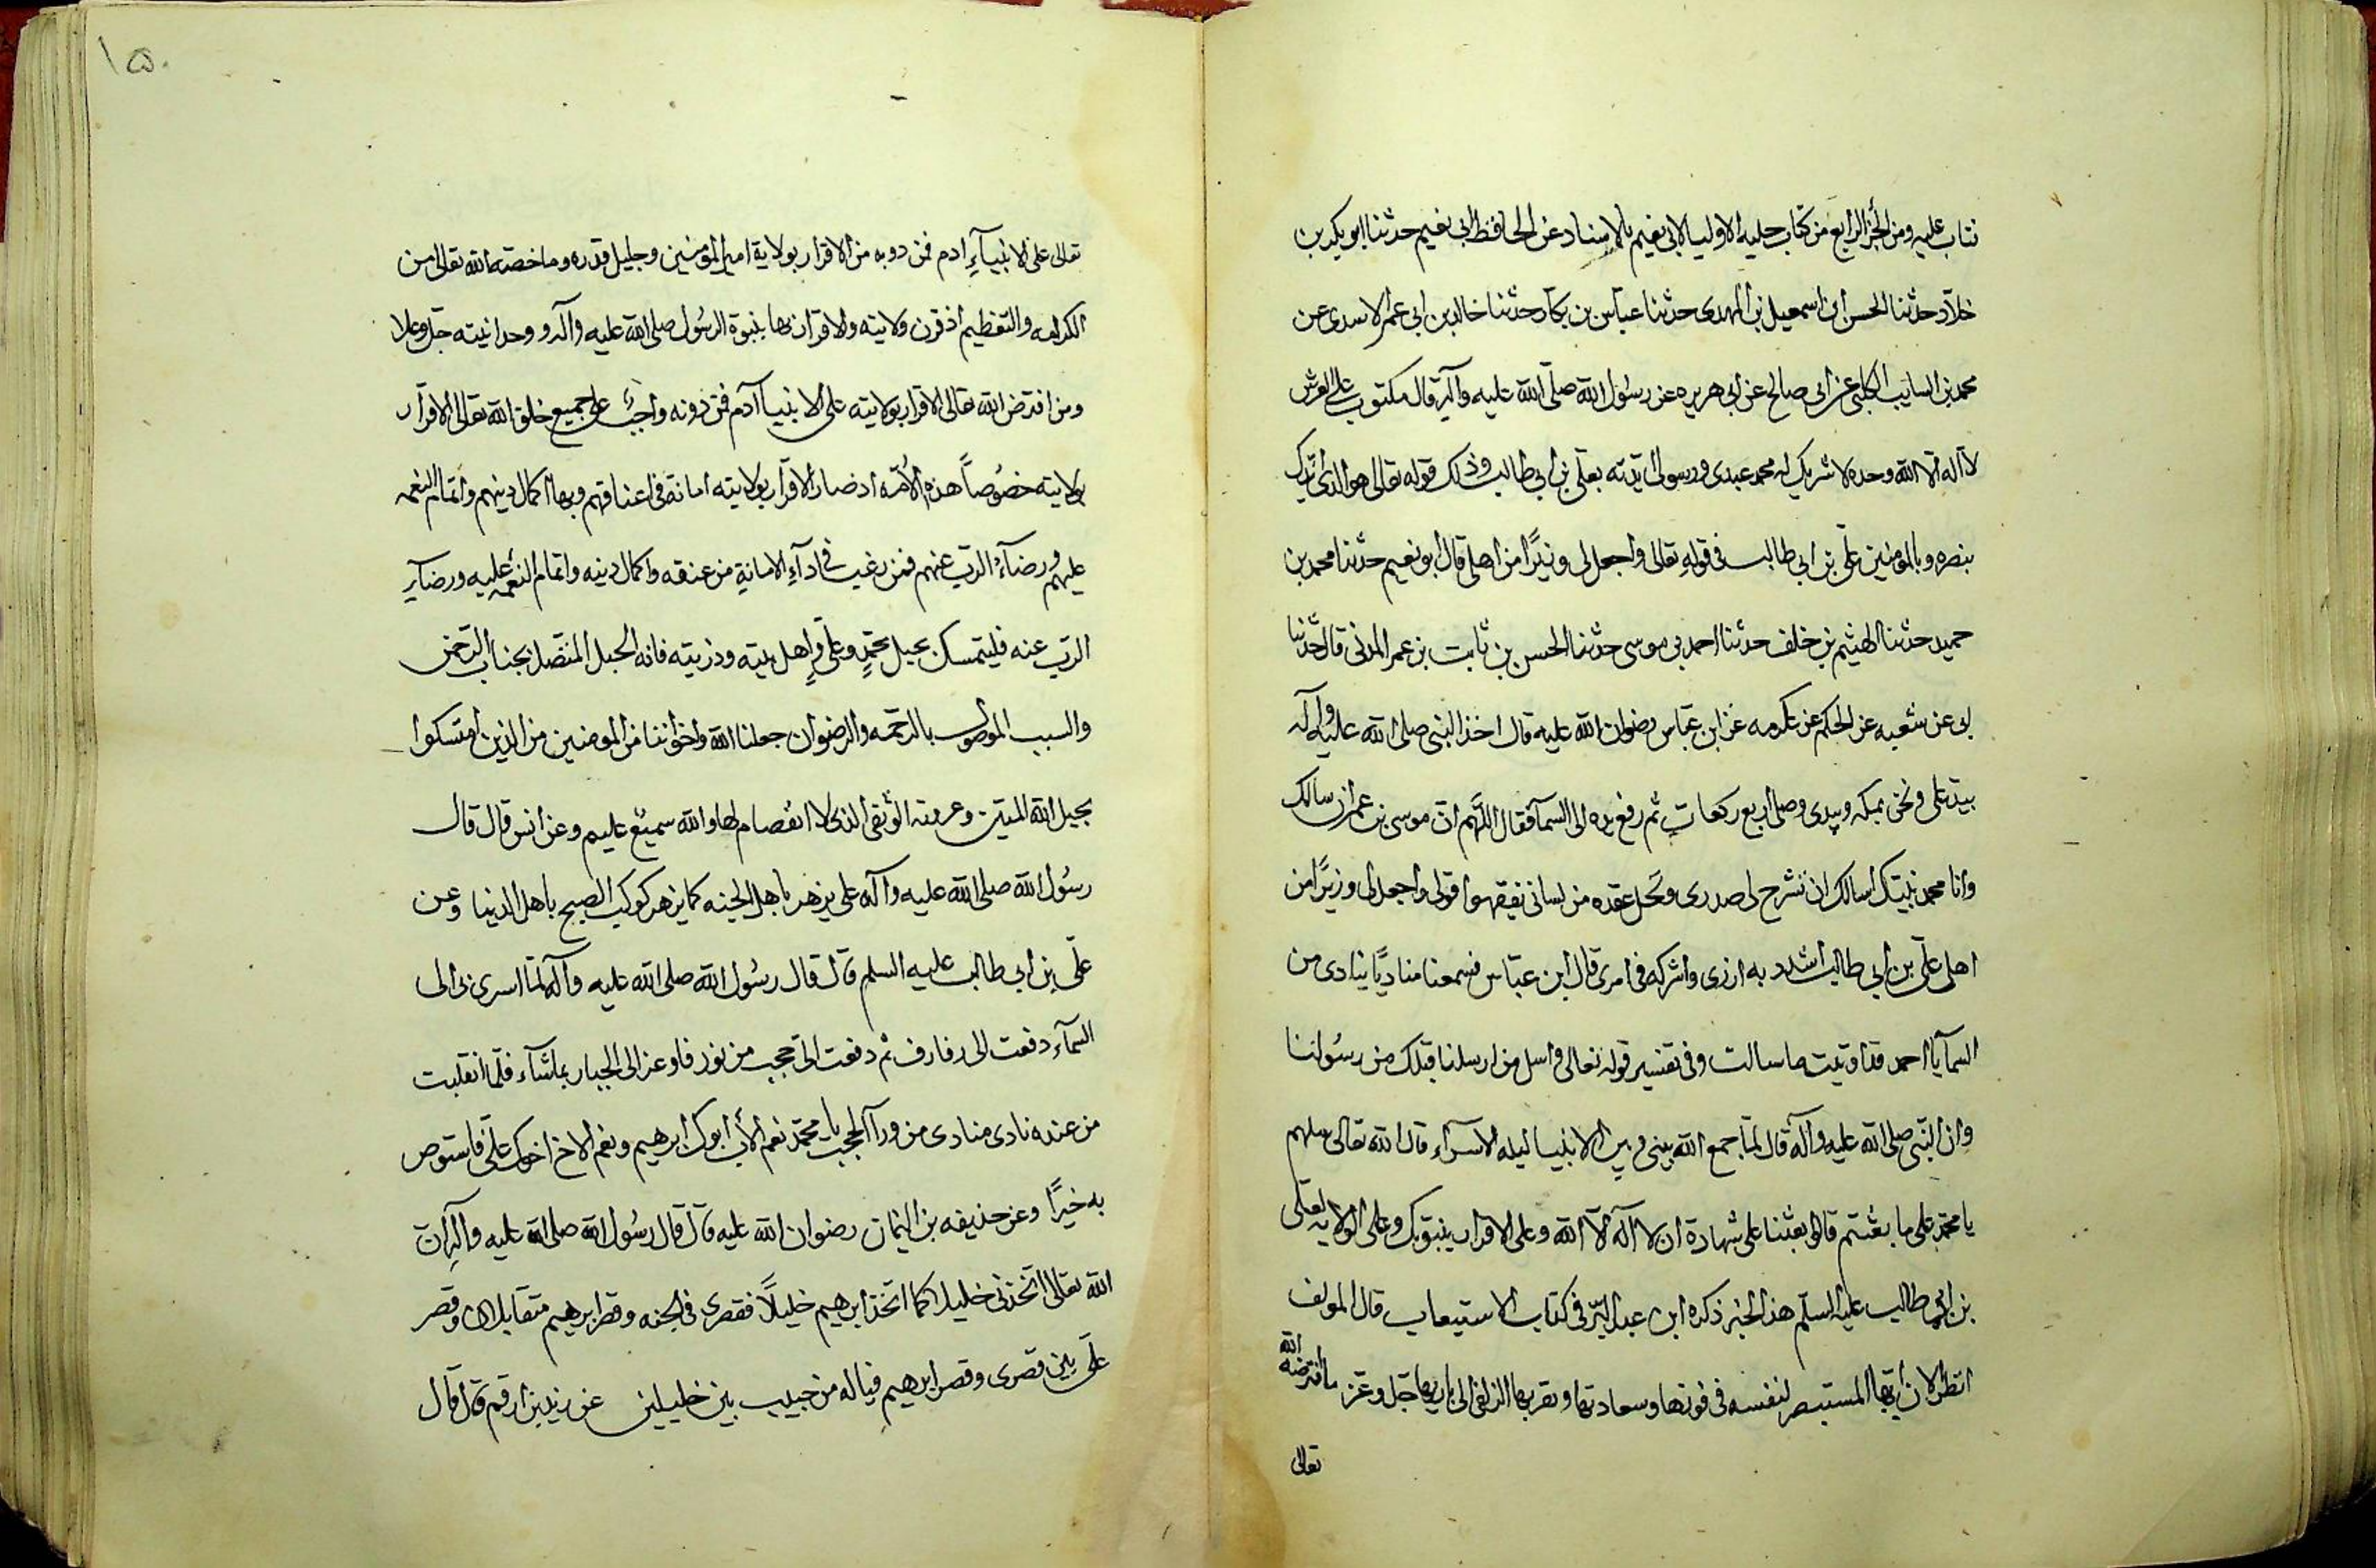 نتاب عليه ومن الجزء الرابع من كتاب حلية الاوليا لابى نعيم بالاسناد عن الحافظ ابى نعيم حدثنا ابو بكر بن
خلاد حدثنا الحسن ابن اسمعيل بن المهدى حدثنا عباس بن بكار حدثنا خالد بن ابى عمر الاسدى عن
محمد بن السايب الكلبى عن ابى صالح عن ابى هريره عن رسول الله صلى الله عليه وآله قال مكتوب على العرش
لا اله الا الله وحده لا شريك له محمد عبدى ورسولى ايدته بعلى بن ابى طالب وذلك قوله تعالى هو الذى ايدك
بنصره وبالمومنين على بن ابى طالب فى قوله تعالى واجعل لى وزيرًا من اهلى قال ابو نعيم حدثنا محمد بن
حميد حدثنا الهيثم بن خلف حدثنا احمد بن موسى حدثنا الحسن بن ثابت بن عمر المدنى قال حدثنا
ابى عن شعبه عن الحكم عن عكرمه عن ابن عباس رضوان الله عليه قال اخذ النبى صلى الله عليه وآله
بيد على ونحن بمكه وبيدى وصلى اربع ركعات ثم رفع يده الى السمآ فقال اللهم ان موسى بن عمران سالك
وانا محمد نبيك اسالك ان تشرح لى صدرى وتحل عقده من لسانى يفقهوا قولى واجعل لى وزيرًا من
اهلى على بن ابى طالب اشدد به ازرى واشركه فى امرى قال ابن عباس فسمعنا مناديًا ينادى من
السمآ يا احمد قد اوتيت ما سالت وفى تفسير قوله تعالى واسل من ارسلنا قبلك من رسولنا
وان النبى صلى الله عليه وآله قال لما جمع الله بينى وبين الانبيا ليله الاسرآء قال الله تعالى سلهم
يا محمد على ما بعثتم قالوا بعثنا على شهادة ان لا اله الا الله وعلى الاقرار بنبوتك وعلى الولايه لعلى
بن ابى طالب عليه السلم هذا الخبر ذكره ابن عبد البر فى كتاب الاستيعاب قال المولف
انظر الان ايها المستبصر لنفسه فى فوزها وسعادتها وتقربها الزلفى الى باريها جل وعز ما افترضه الله
تعالى
١٥٠
تعالى على الانبيآء ادم فمن دونه من الاقرار بولاية امير المومنين وجليل قدره وما خصته الله تعالى من
الكرامه والتعظيم اذ قرن ولايته والاقرار بها بنبوة الرسول صلى الله عليه وآله و وحدانيته جل وعلا
ومن افترض الله تعالى الاقرار بولايته على الانبيآ آدم فمن دونه واجب على جميع خلق الله تعالى الاقرار
بولايته خصوصاً هذه الامه اذ صار الاقرار بولايته امانة فى اعناقهم وبها اكمال دينهم واتمام النعمه
عليهم ورضآء الرب عنهم فمن رغب فى ادآء الامانة من عنقه واكمال دينه واتمام النعمه عليه ورضآء
الرب عنه فليتمسك بحبل محمد وعلى واهل بيته وذريته فانه الحبل المتصل بجناب الرحمن
والسبب الموصول بالرحمه والرضوان جعلنا الله واخواننا من المومنين من الذين امتسكوا
بحبل الله المتين وعروته الوثقى الذى لا انفصام لها والله سميع عليم وعن انس قال قال
رسول الله صلى الله عليه وآله على يزهر باهل الجنه كما يزهر كوكب الصبح باهل الدنيا وعن
على بن ابى طالب عليه السلم قال قال رسول الله صلى الله عليه وآله لما اسرى بى الى
السمآء دفعت الى رفارف ثم دفعت الى حجب من نور فاوعز الى الجبار بما شآء فلما انقلبت
من عنده نادى منادى من ورآ الحجب يا محمد نعم الاب ابوك ابرهيم ونعم الاخ اخوك على فاستوص
به خيرًا وعن حذيفه بن اليمان رضوان الله عليه قال قال رسول الله صلى الله عليه وآله ان
الله تعالى اتخذنى خليلا كما اتخذ ابرهيم خليلًا فقصرى فى الجنه وقصر ابرهيم متقابلان وقصر
على بين قصرى وقصر ابرهيم فياله من حبيب بين خليلين عن زيد بن ارقم قال قال